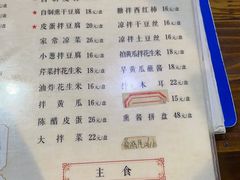 自制熏干豆腐 18元/盘
皮蛋拌豆腐 20元/盘
家常凉菜 16元/盘
小葱拌豆腐 16元/盘
芹菜拌花生米 18元/盘
油炸花生米 16元/盘
拌黄瓜 16元/盘
陈醋皮蛋 26元/盘
大拌菜 22元/盘
糖拌西红柿 16元/盘
凉拌干豆丝 16元/盘
凉拌土豆丝 16元/盘
拍黄瓜拌花生米 18元/盘
旱黄瓜蘸酱 18元/盘
木耳 22元/盘
15元/盘
熏酱拼盘 48元/盘
主食